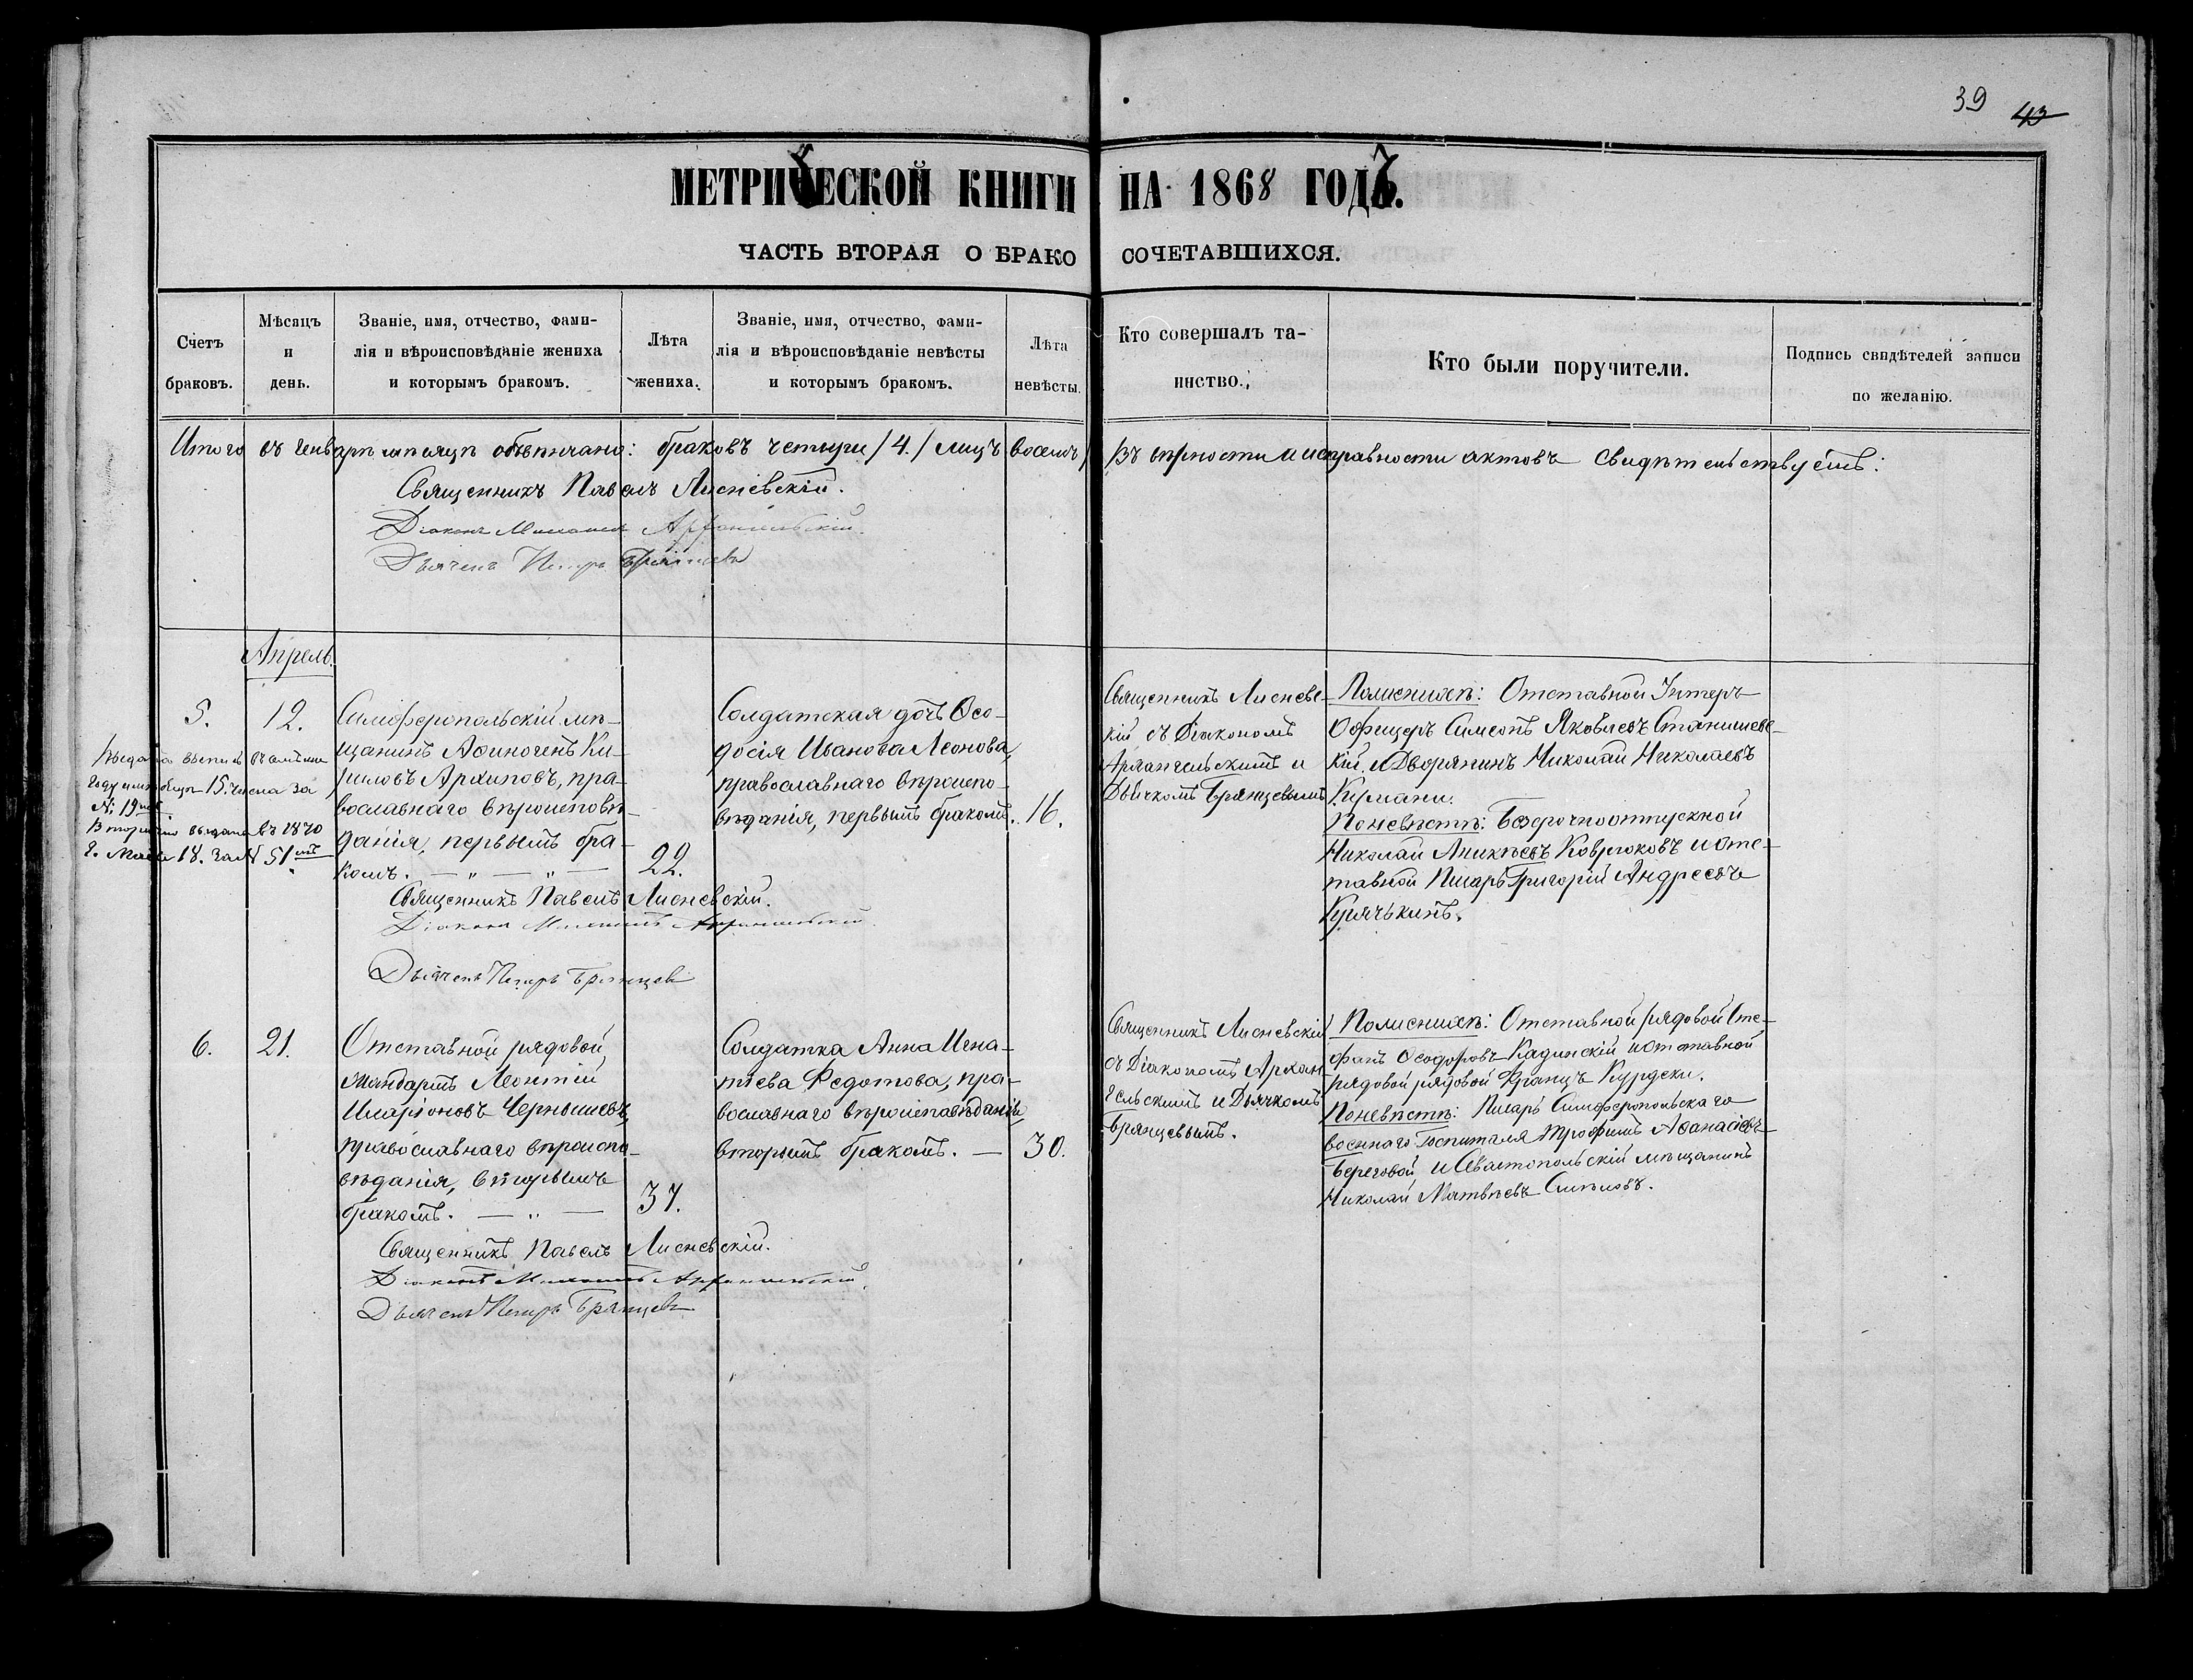 39 43
МЕТРИЧЕСКОЙ КНИГИ НА 1868 ГОДЪ.
ЧАСТЬ ВТОРАЯ О БРАКОСОЧЕТАВШИХСЯ.
Счетъ
браковъ.
Мѣсяцъ
и
день.
Званіе, имя, отчество, фами-
лія и вѣроисповѣданіе жениха
и которымъ бракомъ.
Лѣта
жениха.
Званіе, имя, отчество, фами-
лія и вѣроисповѣданіе невѣсты
и которымъ бракомъ.
Лѣта
невѣсты.
Кто совершалъ та-
инство.
Кто были поручители.
Подпись свидѣтелей записи
по желанію.
Итого въ Генварѣ мѣсяцѣ обвѣнчано: браковъ четыри /4./ лицъ восемь/ Въ вѣрности и исправности актовъ свидѣтельствуетъ:
Священникъ Павелъ Лисневскій.
Діаконъ Михаилъ Архангельскій
Дьячекъ Петръ Брянцевъ
Апрель.
5.
12.
Симферопольскій мѣ-
щанинъ Афиногенъ Ки-
риловъ Архиповъ, пра-
вославнаго вѣроисповѣ-
данія, первымъ бра-
комъ. — " — " —
22.
Солдатская дочь Ѳео-
досія Иванова Леонова,
православнаго вѣроиспо-
вѣданія, первымъ бракомъ.
16.
Священникъ Лисневс-
кій съ Діакономъ
Архангельскимъ и
Дьячкомъ Брянцевымъ
По женихѣ: Отставной Унтеръ
Офицеръ Симеонъ Яковлевъ Станишевс-
кій и Дворянинъ Николай Николаевъ
Кирмани.
По невѣстѣ: Безсрочноотпускной
Николай Аникѣевъ Ковряковъ и отс-
тавной Писарь Григорій Андреевъ
Курячькинъ.
Выдана выпись въ семъ же
году 15. числа за
№ 19мъ
Вторично выдана въ 1870
г. Маія 18. за № 51мъ
Священникъ Павелъ Лисневскій.
Діаконъ Михаилъ Архангельскій
Дьячекъ Петръ Брянцевъ
6.
21.
Отставной рядовой
Жандармъ Леонтій
Иларіоновъ Чернышевъ,
православнаго вѣроиспо-
вѣданія, вторымъ
бракомъ. — " —
37.
Солдатка Анна Игна-
тіева Федотова, пра-
вославнаго вѣроисповѣданія,
вторымъ бракомъ. —
30.
Священникъ Лисневскій
съ Діакономъ Архан-
гельскимъ и Дьячкомъ
Брянцевымъ.
По женихѣ: Отставной рядовой Сте-
фанъ Ѳеодоровъ Кадинскій и отставной
рядовой рядовой Францъ Курдски.
По невѣстѣ: Писарь Симферопольскаго
военнаго Госпиталя Трофимъ Аѳанасіевъ
Береговой и Севастопольскій мѣщанинъ
Николай Матвѣевъ Смѣловъ.
Священникъ Павелъ Лисневскій.
Діаконъ Михаилъ Архангельскій
Дьячекъ Петръ Брянцевъ